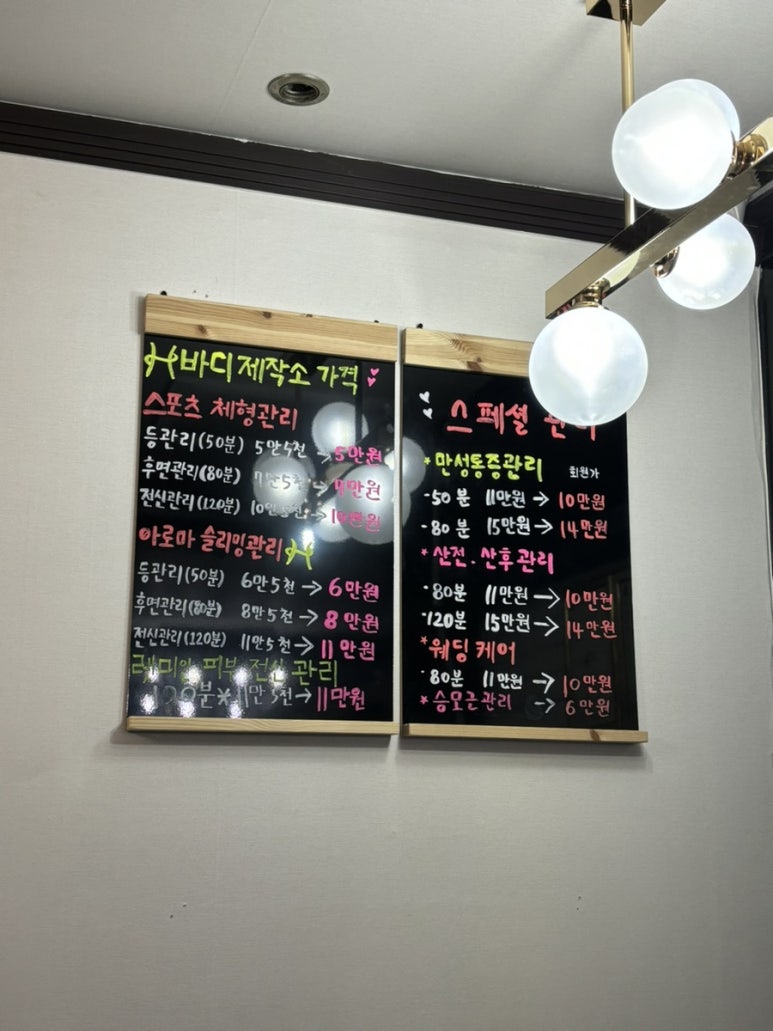 바디제작소 가격
스포츠 체형관리
등관리(50분) 5만5천 → 5만원
후면관리(80분) 7만5천 → 7만원
전신관리(120분) 10만5천 → 10만원
아로마 슬리밍관리
등관리(50분) 6만5천 → 6만원
후면관리(80분) 8만5천 → 8만원
전신관리(120분) 11만5천 → 11만원
피부 전신 관리
120분 * 11만5천 → 11만원
스페셜 관리
* 만성통증관리 회원가
- 50분 11만원 → 10만원
- 80분 15만원 → 14만원
* 산전.산후관리
- 80분 11만원 → 10만원
- 120분 15만원 → 14만원
* 웨딩 케어
- 80분 11만원 → 10만원
* 승모근관리 → 6만원